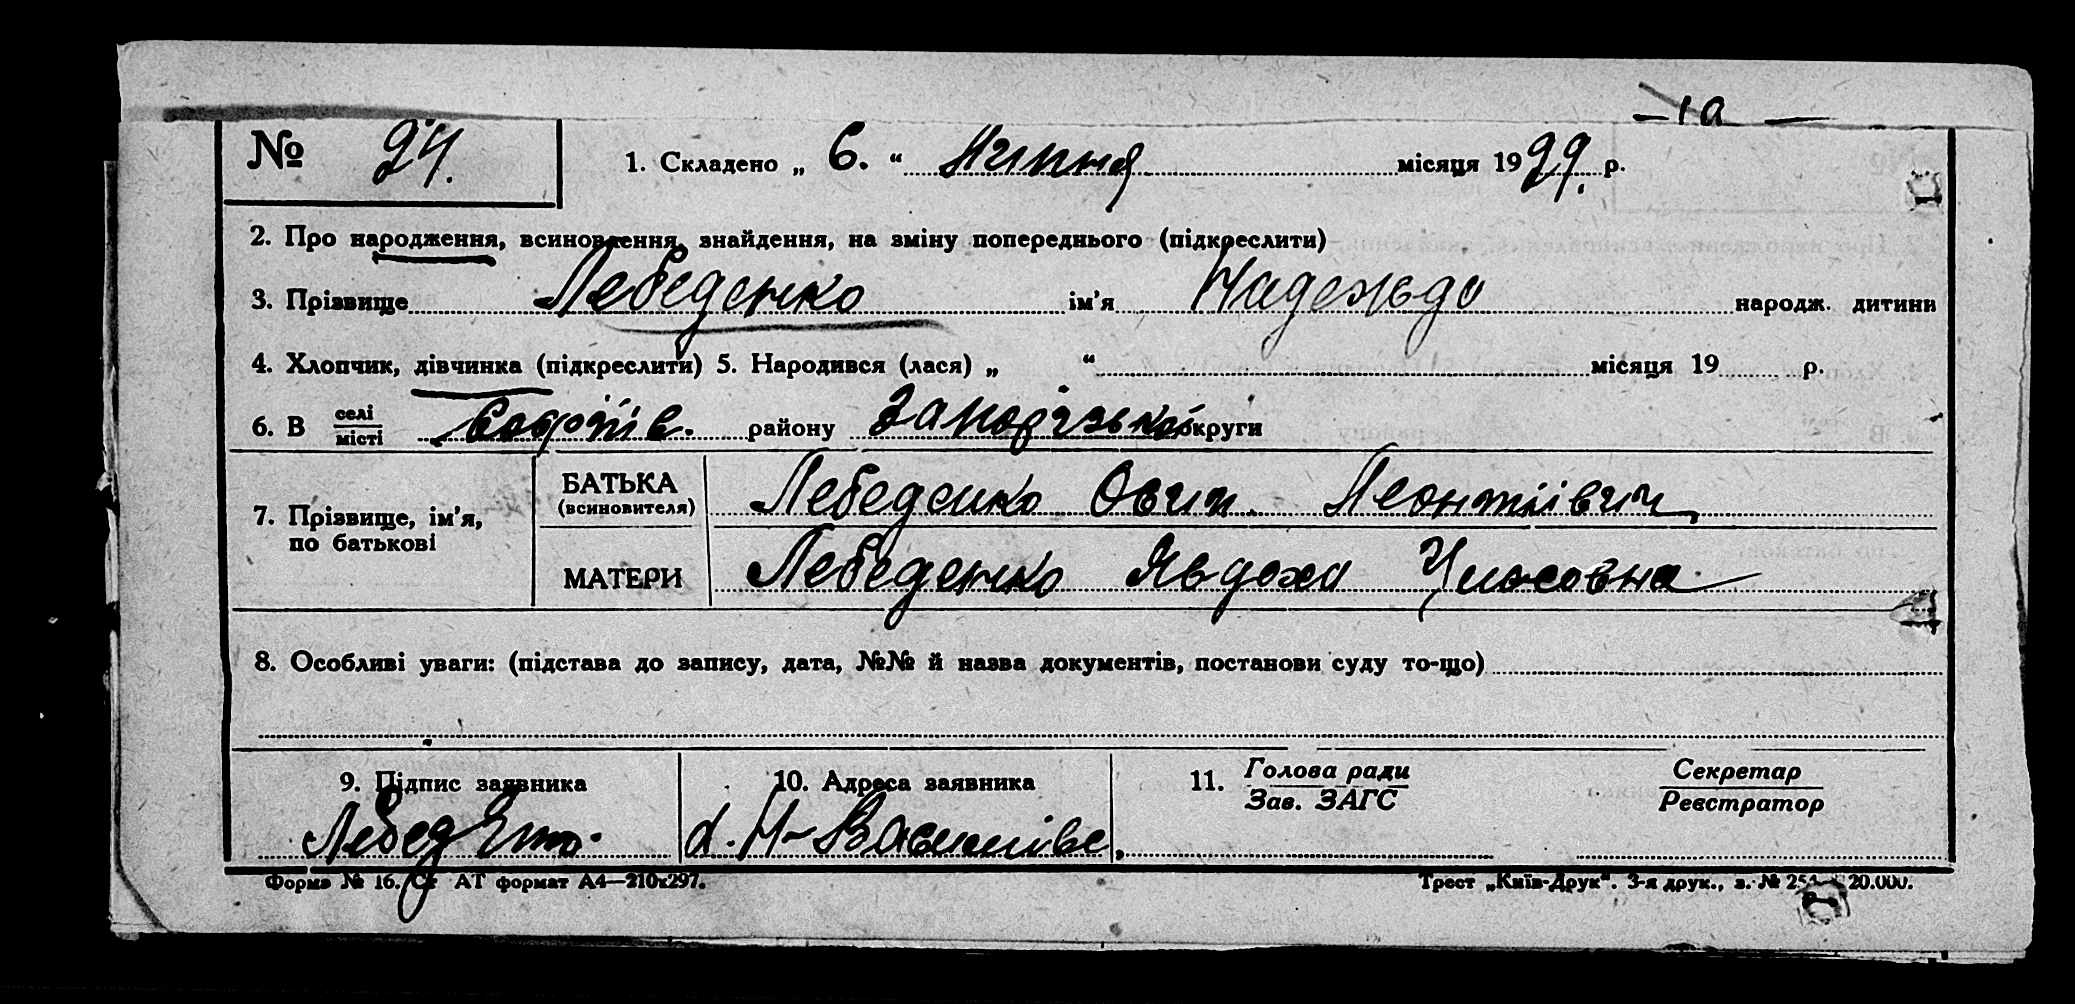 1а
№ 24. 1. Складено „ 6. “ липня місяця 1929. р.
2. Про народження, всиновлення, знайдення, на зміну попереднього (підкреслити)
3. Прізвище Лебеденко ім’я Надежда народж. дитини
4. Хлопчик, дівчинка (підкреслити) 5. Народився (лася) „ “ місяця 19 р.
6. В селі/місті району округи
7. Прізвище, ім’я, по батькові
БАТЬКА (всиновителя) Лебеденко Осип Леонтіївич
МАТЕРИ Лебеденко Явдоха
8. Особливі уваги: (підстава до запису, дата, №№ й назва документів, постанови суду то-що)
9. Підпис заявника 10. Адреса заявника 11. Голова ради/Зав. ЗАГС Секретар/Реєстратор
с. Н-Василівка
Форма № 16. Ст АТ формат А4—210х297. Трест „Київ-Друк“. 3-я друк., з. № 20.000.